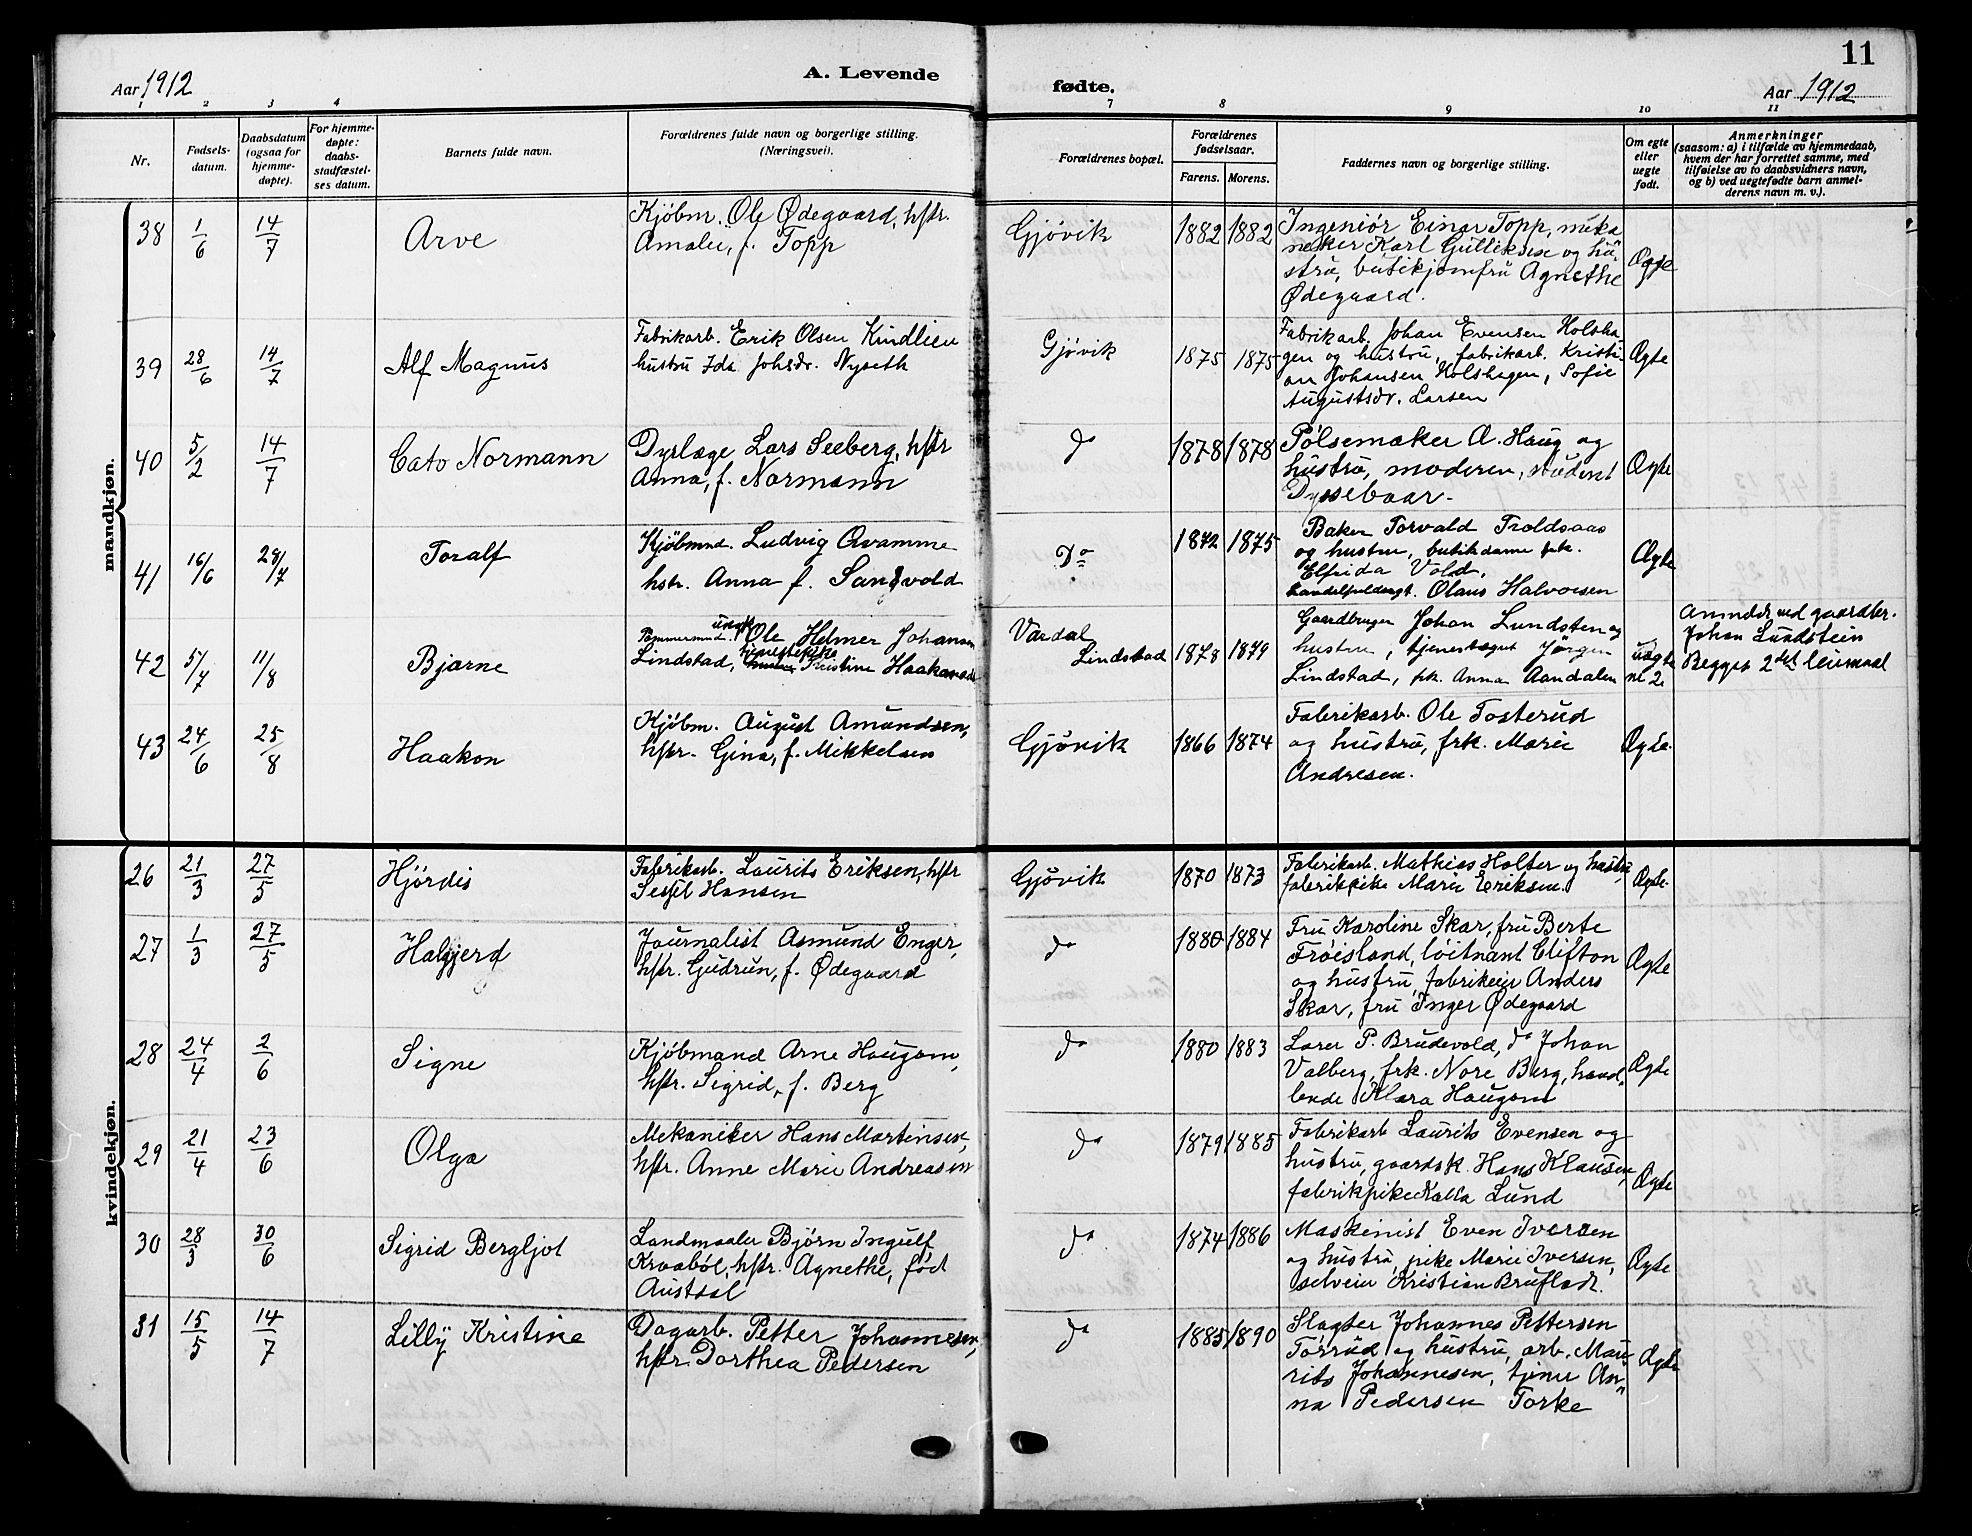 11
Aar 1912
A. Levende
fødte.
Aar 1912
1 2 3 4 7 8 9 10 11
Nr.
Fødsels-
datum.
Daabsdatum
(ogsaa for
hjemme-
døpte).
For hjemme-
døpte:
daabs-
stadfæstel-
ses datum.
Barnets fulde navn.
Forældrenes fulde navn og borgerlige stilling.
(Næringsvei).
Forældrenes bopæl.
Forældrenes
fødselsaar.
Farens. Morens.
Faddernes navn og borgerlige stilling.
Om egte
eller
uegte
født.
Anmerkninger
(saasom: a) i tilfælde av hjemmedaab,
hvem der har forrettet samme, med
tilføielse av to daabsvidners navn,
og b) ved uegtefødte barn anmel-
derens navn m. v.).
mandkjøn.
38 1/6 14/7 Arve
Kjøbm. Ole Ødegaard, hstr.
Amalie, f. Topp
Gjøvik 1882 1882
Ingeniør Einar Topp, meka
niker Karl Gulliksen og hu-
stru, butikjomfru Agnethe
Ødegaard.
Ægte
39 28/6 14/7 Alf Magnus
Fabrikarb. Erik Olsen Kindlien
hustru Ida Johsdr. Nyseth
Gjøvik 1875 1875
Fabrikarb. Johan Evensen Holsha-
gen og hustru, fabrikarb. Kristi-
an Johansen Holshagen, Sofie
Augustsdr. Larsen
Ægte
40 5/2 14/7 Cato Normann
Dyrlæge Lars Seeberg, hstr
Anna, f. Normann
do 1878 1878
Pølsemaker A. Haug og
hustru, moderen, student
Dyssebaar.
Ægte
41 16/6 28/7 Toralf
Kjøbmnd. Ludvig Avamme
hstr. Anna f. Sandvold
Do 1872 1875
Baker Torvald Troldsaas
og hustru, butikdame frk.
Elfrida Vold,
handelsfuldmgt. Olaus Halvorsen
Ægte
42 5/7 11/8 Bjarne
Tømmermnd. ungk. Ole Helmer Johansen
Lindstad, tjenestepike Kristine Haakonsdr
Vardal
Lindstad 1878 1879
Gaardbruger Johan Lundsten og
hustru, tjenestegut Jørgen
Lindstad, frk. Anna Aandalen
uægte
nr 2
Anmeldt ved gaardbr.
Johan Lundstein
Begges 2det leiermaal
43 24/6 25/8 Haakon
Kjøbm. August Amundsen,
hstr. Gina, f. Mikkelsen
Gjøvik 1866 1874
Fabrikarb. Ole Tosterud
og hustru, frk. Marie
Andresen.
Ægte.
kvindekjøn.
26 21/3 27/5 Hjördis
Fabrikarb. Laurits Eriksen, hstr
Sessel Hansen
Gjøvik 1870 1873
Fabrikarb. Mathias Holter og hustru,
fabrikpike Marie Eriksen.
Ægte.
27 1/3 27/5 Halgjerd
Journalist Asmund Enger,
hstr. Gudrun, f. Ødegaard
do 1880 1884
Fru Karoline Skar, fru Berte
Frøisland, løitnant Clifton
og hustru, fabrikeier Anders
Skar, fru Inger Ødegaard
Ægte
28 24/4 2/6 Signe
Kjøbmand Arne Haugom,
hstr. Sigrid, f. Berg
do 1880 1883
Lærer P. Brudevold, do Johan
Valberg, frk. Nore Berg, hand-
lende Klara Haugom
Ægte
29 21/4 23/6 Olga
Mekaniker Hans Martinsen,
hstr. Anne Marie Andreasen
do 1879 1885
Fabrikarb Laurits Evensen og
hustru, gaardsk. Hans Klausen,
fabrikpike Kalla Lund
Ægte
30 28/3 30/6 Sigrid Bergljot
Landmaaler Bjørn Ingulf
Kraabøl, hstr. Agnethe, født
Austdal
do 1874 1886
Maskinist Even Iversen
og hustru, pike Marie Iversen,
selveier Kristian Bruflodt.
Ægte
31 15/5 14/7 Lilly Kristine
Dagarb. Petter Johannesen,
hstr. Dorthea Pedersen
do 1885 1890
Slagter Johannes Pettersen
Torrud og hustru, arb. Mau-
rits Johannesen, tjener An-
na Pedersen Torke
Ægte